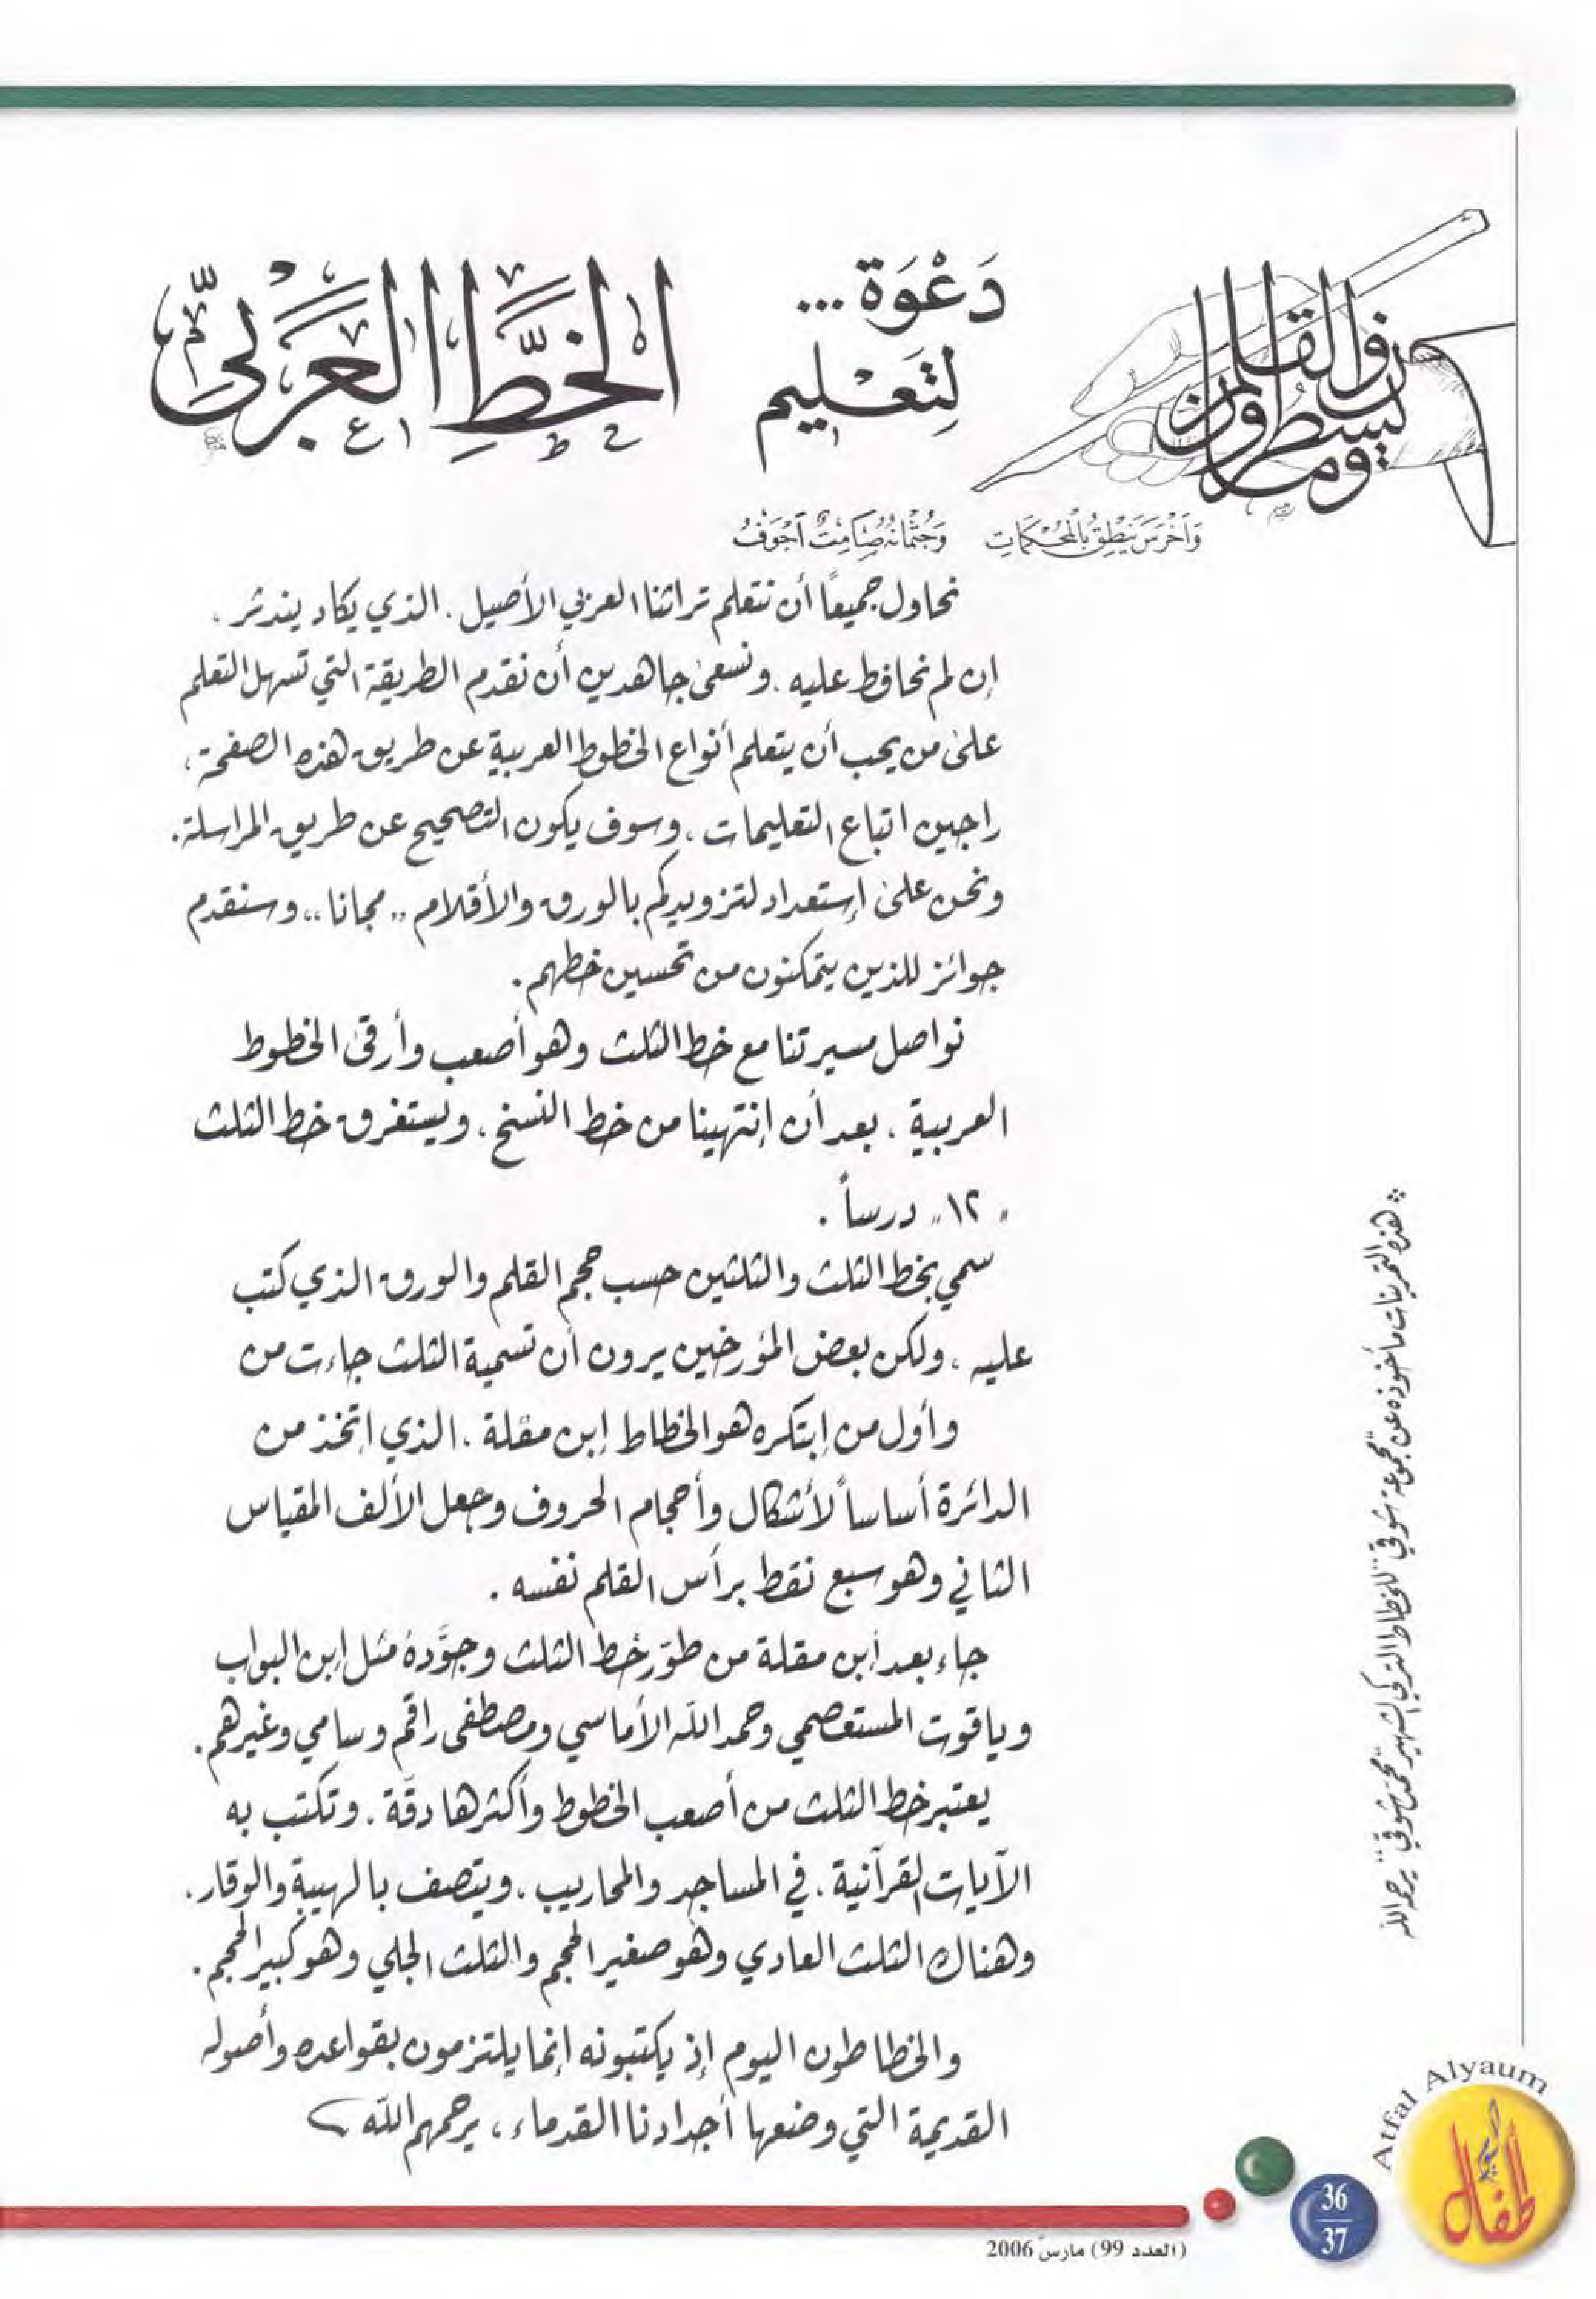 دَعْوَة...
لِتَعْليم
الخَطِّ العَرَبيّ
ن والقلم وما يسطرون
وَأَخْرَسَ يَنْطِقُ بِالْمُحْكَمَاتِ وَجُثْمَانُهُ صَامِتٌ أَجْوَفُ
نحاول جميعاً أن نتعلم تراثنا العربي الأصيل. الذي يكاد يندثر،
إن لم نحافظ عليه. ونسعى جاهدين أن نقدم الطريقة التي تسهل التعلم
على من يحب أن يتعلم أنواع الخطوط العربية عن طريق هذه الصفحة،
راجين اتباع التعليمات، وسوف يكون التصحيح عن طريق المراسلة.
ونحن على إستعداد لتزويدكم بالورق والأقلام "مجانا"، وسنقدم
جوائز للذين يتمكنون من تحسين خطهم.
نواصل مسيرتنا مع خط الثلث وهو أصعب وأرقى الخطوط
العربية. بعد أن إنتهينا من خط النسخ، ويستغرق خط الثلث
"١٢" درساً.
سمي بخط الثلث والثلثين حسب حجم القلم والورق الذي كتب
عليه، ولكن بعض المؤرخين يرون أن تسمية الثلث جاءت من
وأول من إبتكره هو الخطاط إبن مقلة. الذي اتخذ من
الدائرة أساساً لأشكال وأحجام الحروف وجعل الألف المقياس
الثاني وهو سبع نقط برأس القلم نفسه.
جاء بعد أبن مقلة من طوّر خط الثلث وجوَّدة مثل إبن البواب
وياقوت المستعصمي وحمد الله الأماسي ومصطفى راقم وسامي وغيرهم.
يعتبر خط الثلث من أصعب الخطوط وأكثرها دقّة. وتكتب به
الآيات القرآنية. في المساجد والمحاريب، ويتصف بالهيبة والوقار.
وهناك الثلث العادي وهو صغير الحجم والثلث الجلي وهو كبير الحجم.
والخطاطون اليوم إذ يكتبونه إنما يلتزمون بقواعده وأصوله
القديمة التي وضعها أجدادنا القدماء، يرحمهم الله
هذه التمرينات مأخوذه عن "مجموعة شوقي" للخطاط التركي الشهير "محمد شوقي" يرحمه الله
Atfal Alyaum
أطفال اليوم
36
37
(العدد 99) مارس 2006